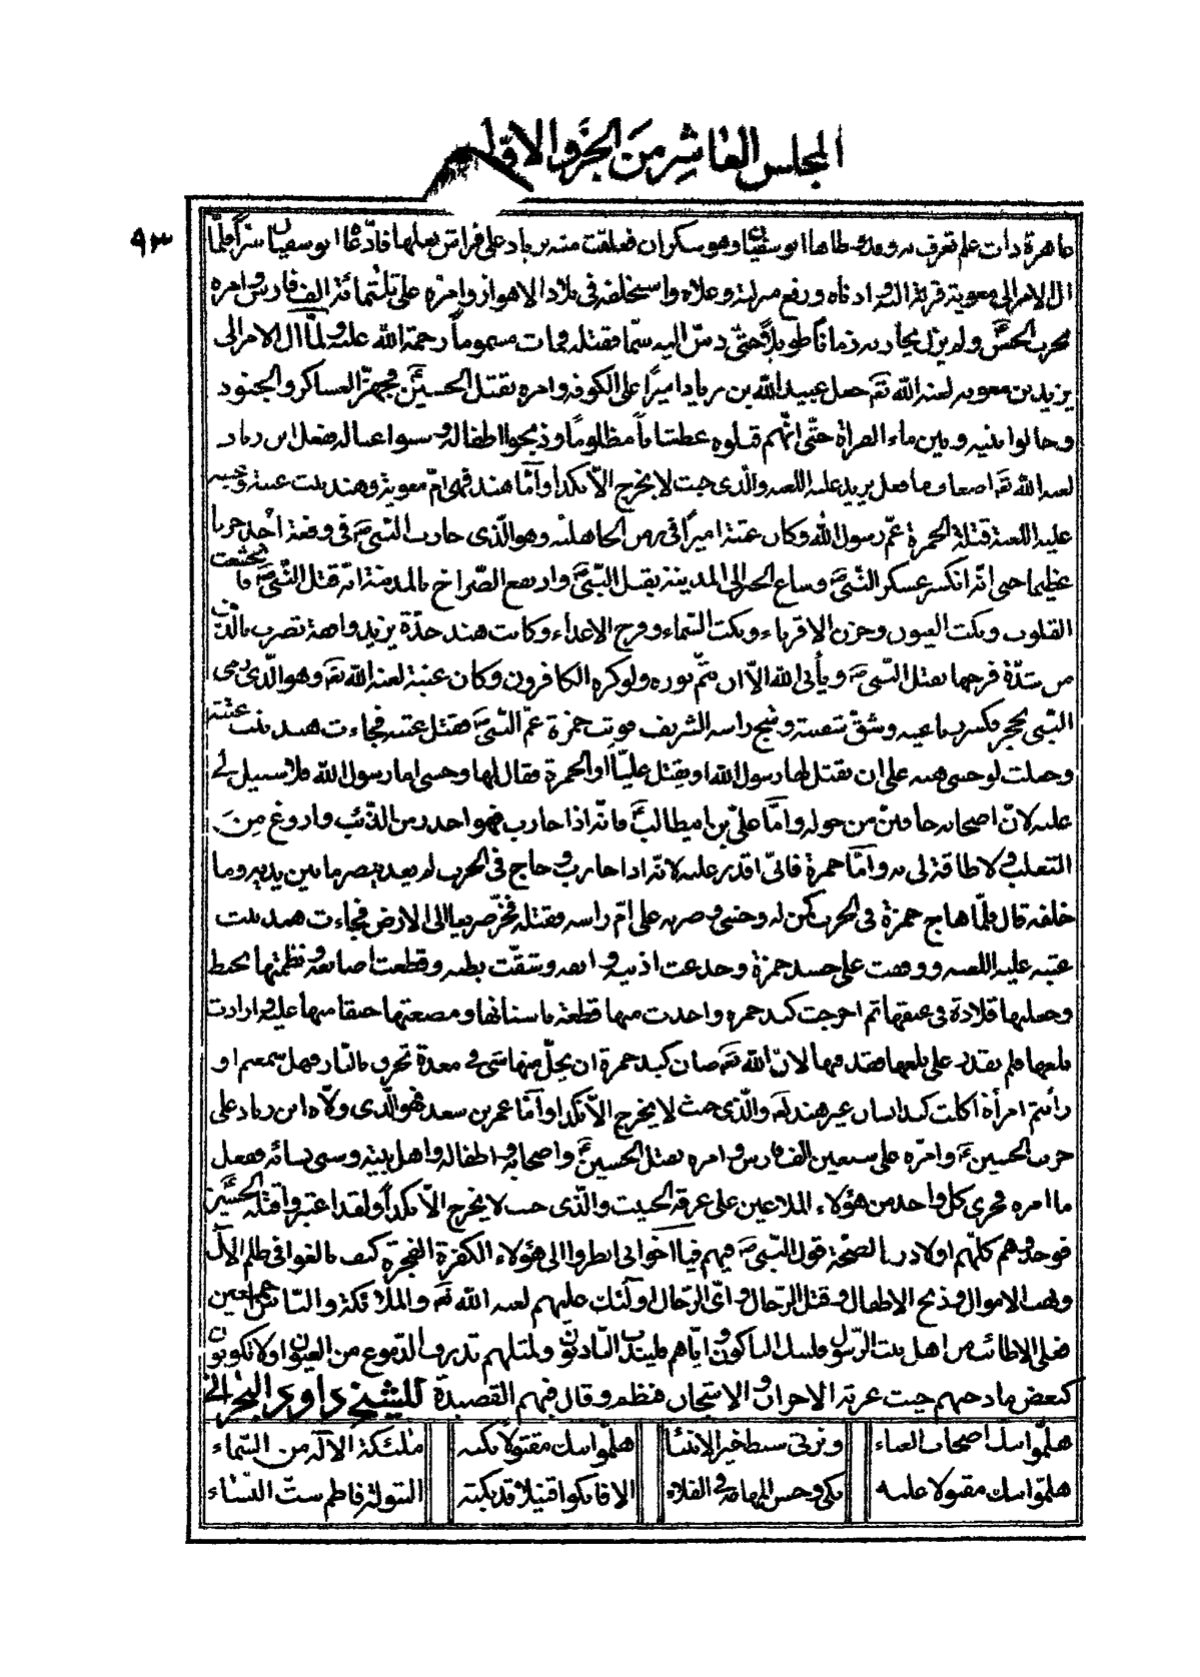 المجلس العاشر من الجزء الاول
٩٣
عاهرة ذات علم تعرف به وقد وطاها ابوسفيان وهو سكران فعلقت منه بزياد على فراش بعلها فادّعاها ابوسفيان سرّا فلمّا
ال الامر الى معوية قربه اليه وادناه ورفع منزلته وعلاه واستخلفه فى بلاد الاهواز وامّره على ثلثمائة الف فارس وامره
بحرب الحسن ولم يزل يحاربه زمانا طويلا حتّى دسّ اليه سمّا فقتله فمات مسموما رحمة الله عليه ولمّا ال الامر الى
يزيد بن معويه لعنه الله تعالى جعل عبيد الله بن زياد اميرا على الكوفه وامره بقتل الحسين فجهّز العساكر والجنود
وحالوا بينه وبين ماء الفراة حتّى انّهم قتلوه عطشانا مظلوما وذبحوا اطفاله وسبوا عياله ففعل ابن زياد
لعنه الله تعالى اضعاف ما فعل يزيد عليه اللعنه والّذى خبث لا يخرج الّا نكدا وامّا هند فهى امّ معوية وهند بنت عتبة
عليه اللعنة قتلة الحمزة عمّ رسول الله وكان عتبة اميرا فى زمن الجاهليه وهو الّذى حارب النّبى ص فى وقعة احد حربا
عظيما حتى انّه انكسر عسكر النّبى ص وشاع الخبر الى المدينة بقتل النّبى ص وارتفع الصّراخ بالمدينة انّه قتل النّبى ص فا نخشعت
القلوب وبكت العيون وحزن الاقرباء وبكت السّماء وفرح الاعداء وكانت هند جدّة يزيد واقفة تضرب بالدّف
من شدّة فرحها بقتل النّبى ص ويأبى الله الّا ان يتمّ نوره ولو كره الكافرون وكان عتبة لعنه الله تعالى وهو الّذى رمى
النّبى بحجر فكسر رباعيه وشقّ شفته وشجّ راسه الشّريف فوثب حمزة عمّ النّبى ص فقتل عتبه فجاءت هند بنت عتبة
وجعلت لوحشى هبه على ان يقتل لها رسول الله او يقتل عليّا او الحمزة فقال لها وحشى اما رسول الله فلا سبيل لى
عليه لانّ اصحابه حافين من حوله وامّا علىّ بن ابيطالب فانّه اذا حارب فهو احذر من الذّئب واروغ من
الثعلب ولا طاقة لى به وامّا حمزة فانّى اقدر عليه لانّه اذا حارب وهاج فى الحرب لم يعد يبصر ما بين يديه وما
خلفه قال فلمّا هاج حمزة فى الحرب كمن له وحشى وضربه على امّ راسه وقتله فخرّ صريعا الى الارض فجاءت هند بنت
عتبه عليه اللعنه ووقفت على جسد حمزة وجدعت اذنيه وانفه وشقّت بطنه وقطعت اصابعه ونظمتها بخيط
وجعلتها قلادة فى عنقها ثم اخرجت كبد حمزه واخذت منها قطعة باسنانها ومضغتها حنقا منها عليه وارادت
بلعها فلم يقدر على بلعها فقذفتها لانّ الله تعالى صان كبد حمزة ان يحلّ منها شى فى معدة تحرق بالنّار فهل سمعتم او
رأيتم امرأة اكلت كبد انسان غير هند لعنه والّذى خبث لا يخرج الّا نكدا وامّا عمر بن سعد فهو الّذى ولّاه ابن زياد على
حرب الحسين ع وامّره على سبعين الف فارس وامره بقتل الحسين ع واصحابه واطفاله واهل بيته وسبى نسائه ففعل
ما امره فجرى كل واحد من هؤلاء الملاعين على عرقه الخبيث والّذى خبث لا يخرج الّا نكدا ولقد اعتبروا قتلة الحسين
فوجدوهم كلّهم اولاد زنا لصحّة قول النّبى ص فيهم فيا اخوانى انظروا الى هؤلاء الكفرة الفجرة كيف بالغوا فى ظلم الآل
ونهب الاموال وذبح الاطفال وقتل الرّجال واىّ الرّجال اولئك عليهم لعنه الله تعالى والملائكة والنّاس اجمعين
فعلى الاطائب من اهل بيت الرّسول فليبك الباكون وايّاهم فليندب النّادبون ولمثلهم تذرف الدّموع من العيون او لا تكونون
كبعض مادحيهم حيث عرته الاحزان والاشجان فنظم وقال فيهم القصيدة للشيخ داود البحرانى
هلمّوا نبك اصحاب العباء ونرثى سبط خير الانبياء هلمّوا نبك مقتولا بكته ملئكة الآله من السّماء
هلمّوا نبك مقتولا عليه بكى وحس المهامه فى الفلاه الا فابكوا قتيلا قد بكته البتولة فاطم ستّ النّساء